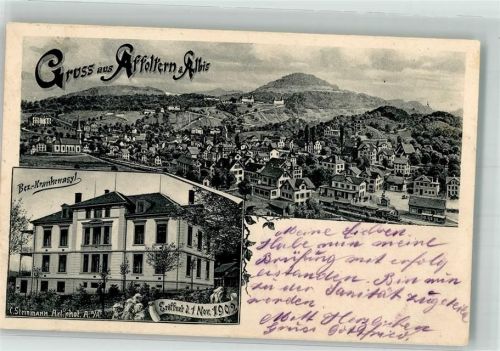 Gruss aus Affoltern a. Albis
Bez.-Krankenasyl
Eröffnet d. 1 Nov. 1902
C. Steinmann Art. phot. A. a/A
Meine Lieben.
Habe nun meine
Prüfung mit erfolg
bestanden. Bin nun
zu der Sanität zugeteilt
worden
Mit Herzguten
Gruss Gottfried